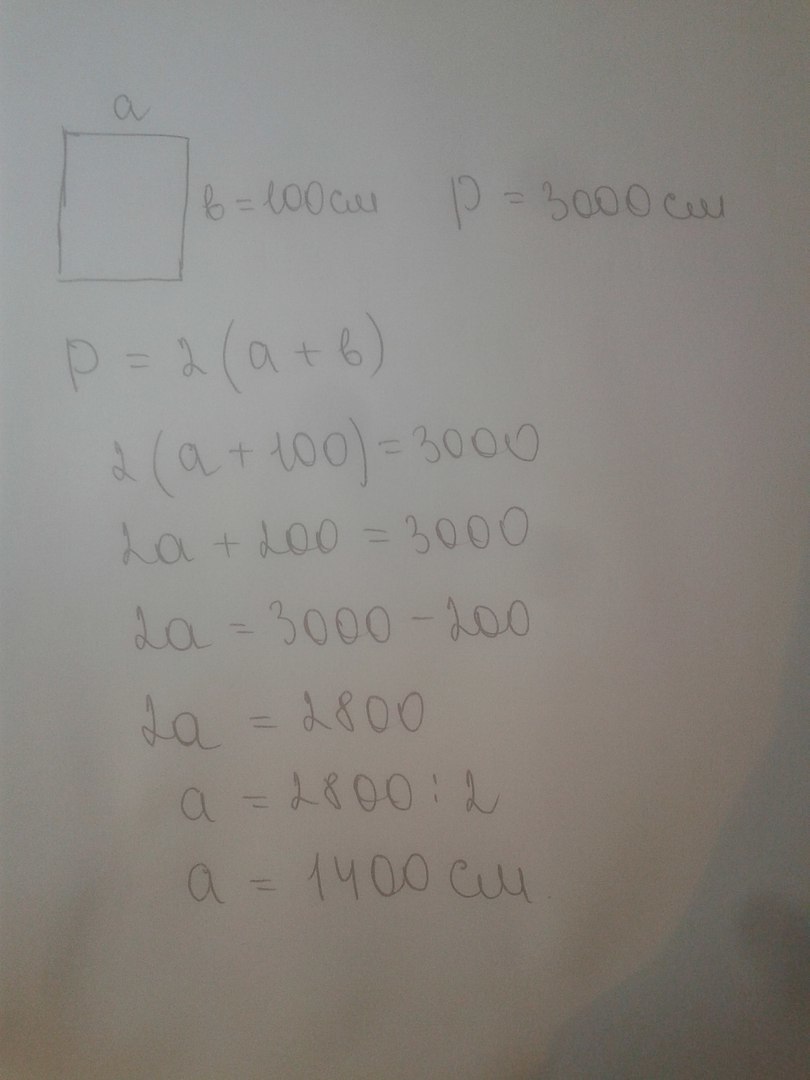 a
в = 100 см P = 3000 см
P = 2(a + в)
2(a + 100) = 3000
2a + 200 = 3000
2a = 3000 - 200
2a = 2800
a = 2800 : 2
a = 1400 см